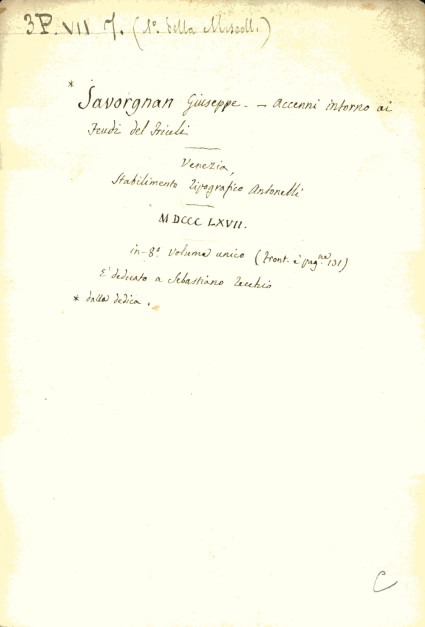 3P. VII 7. (1º. della Miscell.)
* Savorgnan Giuseppe. - Accenni intorno ai
Feudi del Friuli
Venezia,
Stabilimento Tipografico Antonelli
MDCCC LXVII.
in-8º. volume unico (Front. e pag.ne 131)
E' dedicato a Sebastiano Tecchio
* dalla dedica.
C